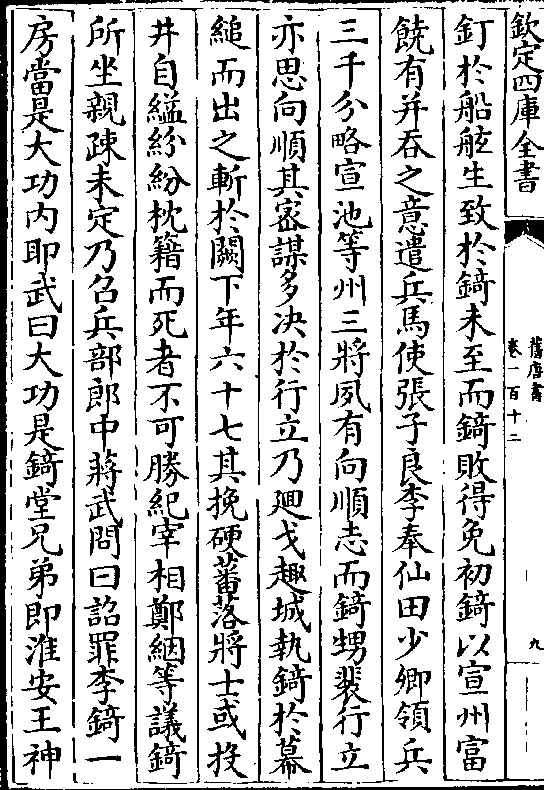 欽定四庫全書
舊唐書
卷一百十二
九
釘於船舷生致於錡未至而錡敗得免初錡以宣州富
饒有并吞之意遣兵馬使張子良李奉仙田少卿領兵
三千分略宣池等州三將夙有向順志而錡甥裴行立
亦思向順其宻謀多決於行立乃廻戈趣城執錡於幕
縋而出之斬於闕下年六十七其挽硬蕃落將士或投
井自縊紛紛枕籍而死者不可勝紀宰相鄭絪等議錡
所坐親疎未定乃召兵部郎中蔣武問曰詔罪李錡一
房當是大功内耶武曰大功是錡堂兄弟即淮安王神